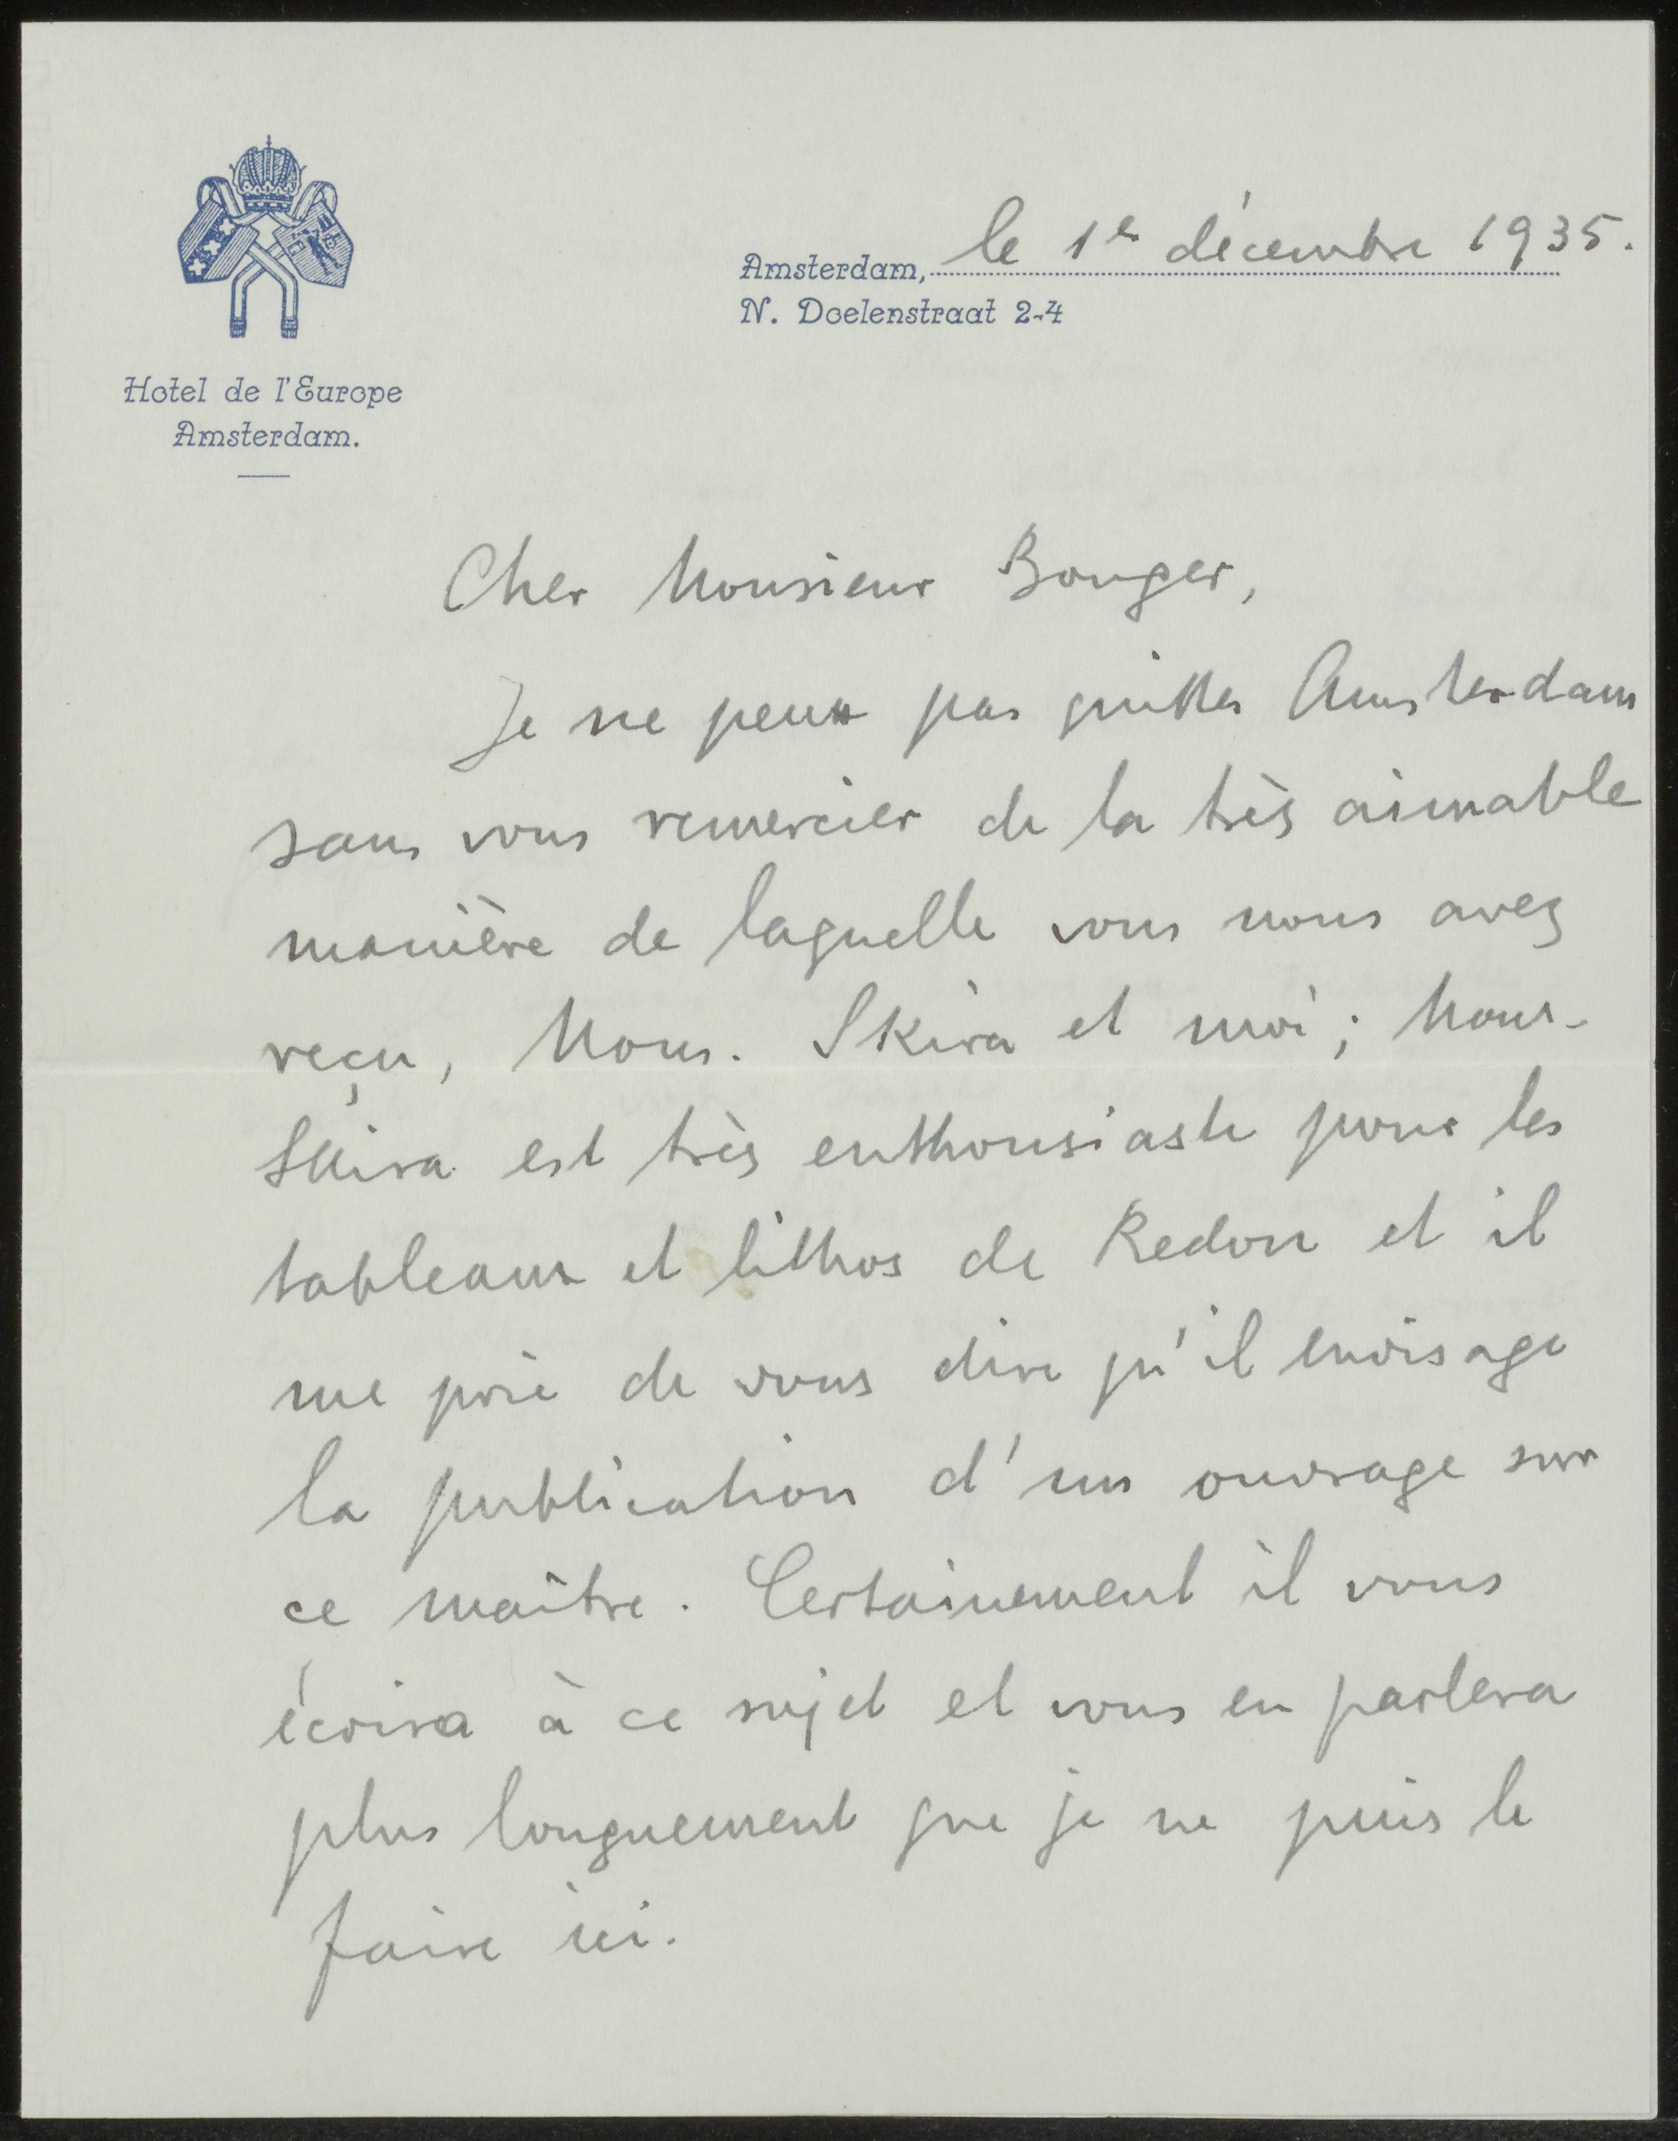 Hotel de l'Europe
Amsterdam.
Amsterdam, le 1er décembre 1935.
N. Doelenstraat 2-4
Cher Monsieur Bonger,
Je ne peux pas quitter Amsterdam
sans vous remercier de la très aimable
manière de laquelle vous nous avez
reçu, Mons. Skira et moi; Mons.
Skira est très enthousiaste pour les
tableaux et lithos de Redon et il
me prie de vous dire qu'il envisage
la publication d'un ouvrage sur
ce maître. Certainement il vous
écrira à ce sujet et vous en parlera
plus longuement que je ne puis le
faire ici.